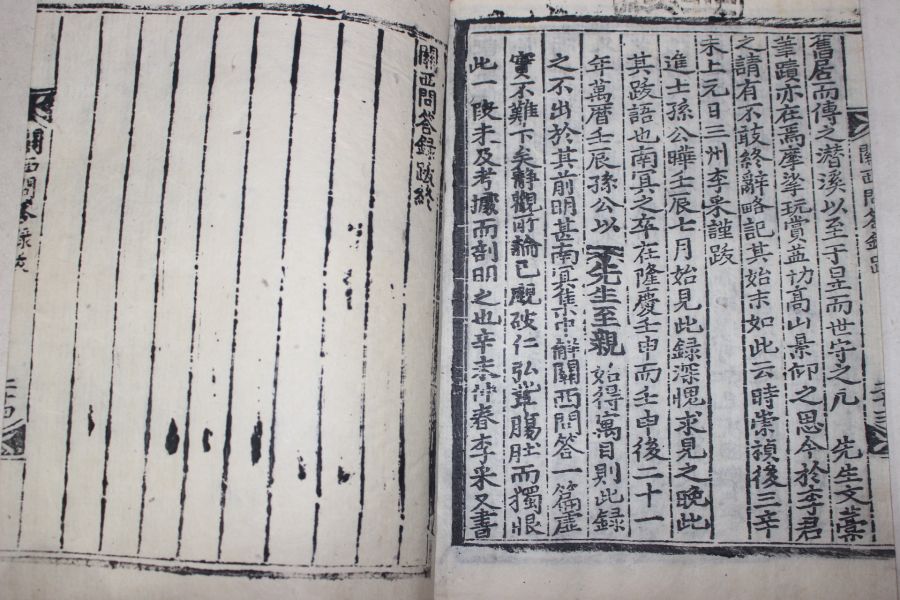 舊居而傳之潛溪以至于昰而世守之凡 先生文藁
筆蹟亦在焉摩挲玩賞益切高山景仰之思今於李君
之請有不敢終辭略記其始末如此云時崇禎後三辛
未上元日三州李采謹跋
進士孫公曄壬辰七月始見此錄深愧求見之晚此
其跋語也南冥之卒在隆慶壬申而壬申後二十一
年萬曆壬辰孫公以 先生至親 始得寓目則此錄
之不出於其前明甚南冥集中解關西問答一篇虛
實不難下矣靜觀所論已覷破仁弘輩膓肚而獨恨
此一段未及考據而剖明之也辛未仲春李采又書
關西問答錄跋
二十三
關西問答錄跋終
關西問答錄跋
二十四